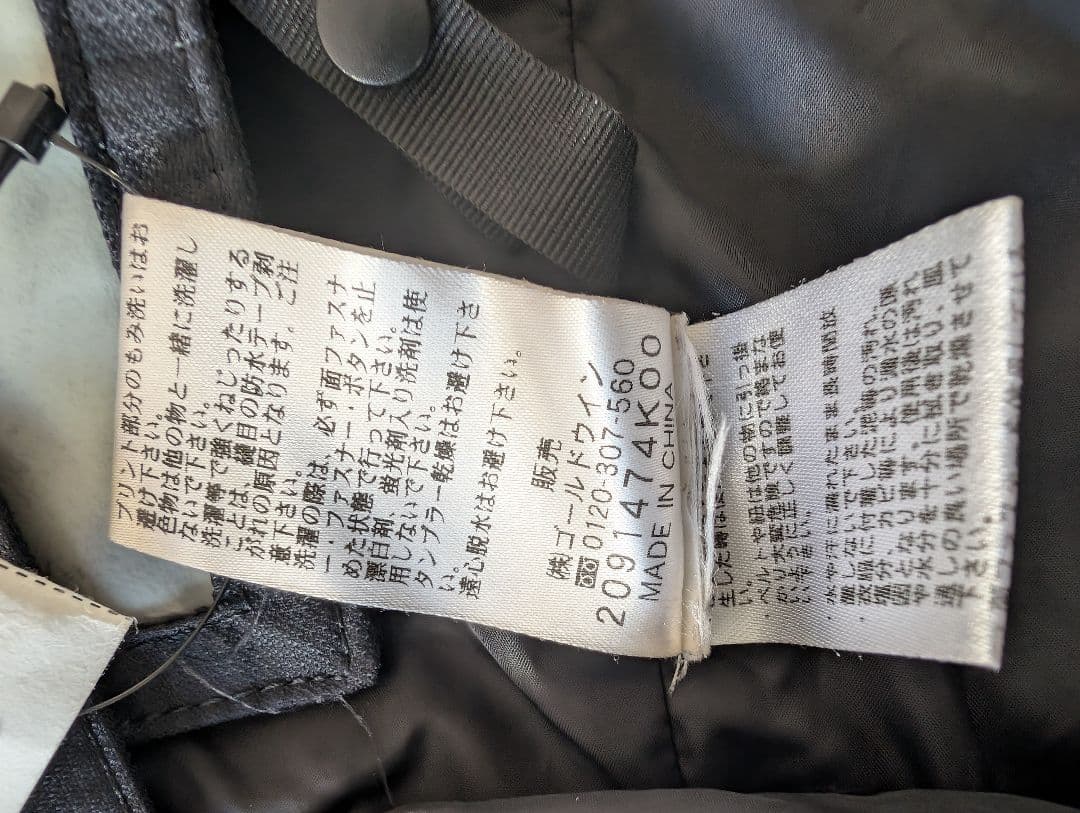 プリント部分のもみ洗いはお
避け下さい。
色物は他の物と一緒に洗濯し
ないで下さい。
洗濯棒で強くねじったりする
ことは、縫目の防水テープ剥
がれの原因となります。ご注
意下さい。
洗濯の際は、必ず面ファスナ
ー・ファスナー・ボタンを止
めた状態で行って下さい。
漂白剤、蛍光剤入り洗剤は使
用しないで下さい。
タンブラー乾燥はお避け下さ
い。
遠心脱水はお避け下さい。
販売
㈱ゴールドウイン
0120-307-560
2091474K00
MADE IN CHINA
生した時は
い。
ベルトや紐は他の物に引っ掛
かい大変危険ですので絡まな
いように正しく調整してお使
い下さい。
水や汗に濡れたまま長時間放
置しないで下さい。
・製品に付着した泥類の汚れ、
塩分、カビ等により漏水の原
因となります。使用後は汚れ
や水分を十分に拭き取い、風
通しの良い場所で乾燥させて
下さい。